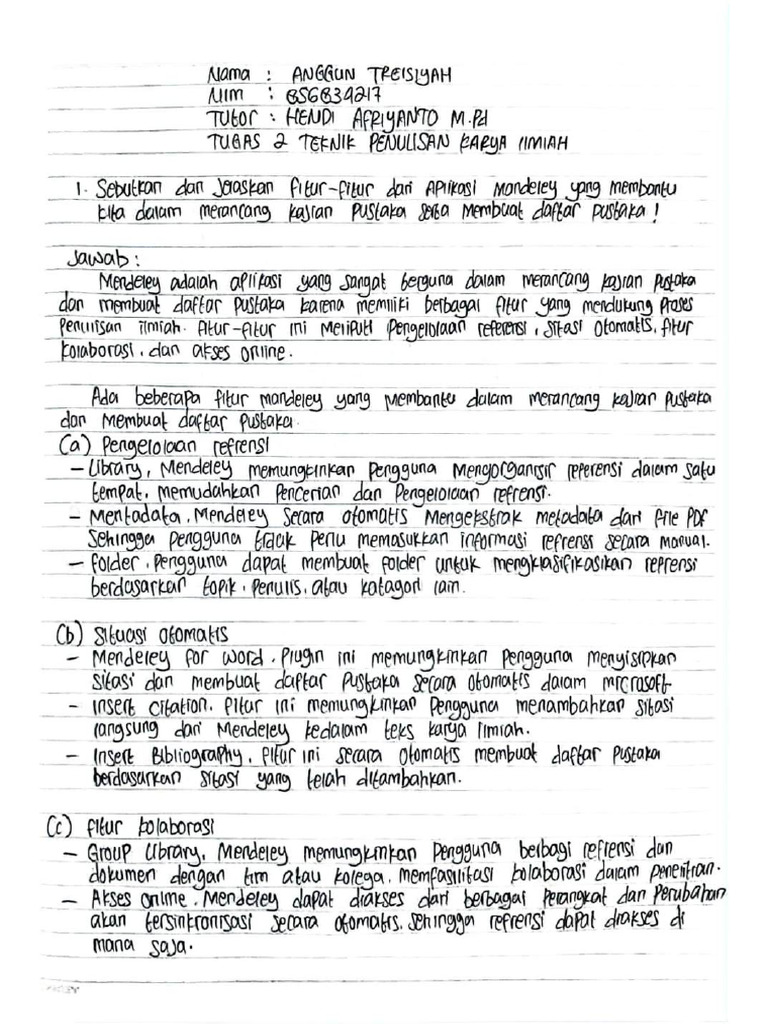 Nama : ANGGUN TREISIYAH
NIM : 856834217
TUtor : HENDI AFRIYANTO M.Pd
TUGAS 2 TEKNIK PENULISAN KARYA ILMIAH
1. Sebutkan dan Jelaskan fitur-fitur dari Aplikasi Mandeley yang membantu
kita dalam merancang kajian pustaka serta Membuat daftar pustaka !
Jawab :
Mendeley adalah aplikasi yang sangat berguna dalam merancang kajian pustaka
dan membuat daftar pustaka karena memiliki berbagai fitur yang mendukung Proses
Penulisan ilmiah. fitur-fitur ini meliputi Pengelolaan referensi, Sitasi otomatis, fitur
kolaborasi, dan akses online.
Ada beberapa fitur mandeley yang membantu dalam merancang kajian pustaka
dan Membuat daftar pustaka.
(a) Pengelolaan refrensi
- Library, Mendeley memungkinkan Pengguna Mengorganisir referensi dalam satu
tempat, memudahkan Pencerian dan Pengelolaan refrensi.
- Mentadata, Mendeley Secara otomatis Mengekstrak metadata dari file PDF
Sehingga pengguna tidak perlu memasukkan informasi refrensi secara manual.
- folder, Pengguna dapat membuat folder untuk mengklasifikasikan refrensi
berdasarkan topik, Penulis, atau katagori lain.
(b) Situasi otomatis
- Mendeley for word, Plugin ini memungkinkan pengguna menyisipkan
Sitasi dan membuat daftar Pustaka secara otomatis dalam microsoft
- Insert Citation, fitur ini memungkinkan Pengguna menambahkan sitasi
langsung dari Mendeley kedalam teks karya ilmiah.
- Insert Bibliography, fitur ini secara otomatis membuat daftar pustaka
berdasarkan sitasi yang telah ditambahkan.
(c) fitur kolaborasi
- Group Library, Mendeley memungkinkan Pengguna berbagi refrensi dan
dokumen dengan tim atau kolega, memfasilitasi kolaborasi dalam penelitian.
- Akses online, Mendeley dapat diakses dari berbagai Perangkat dan Perubahan
akan tersinkronisasi secara otomatis, sehingga refrensi dapat diakses di
mana saja.